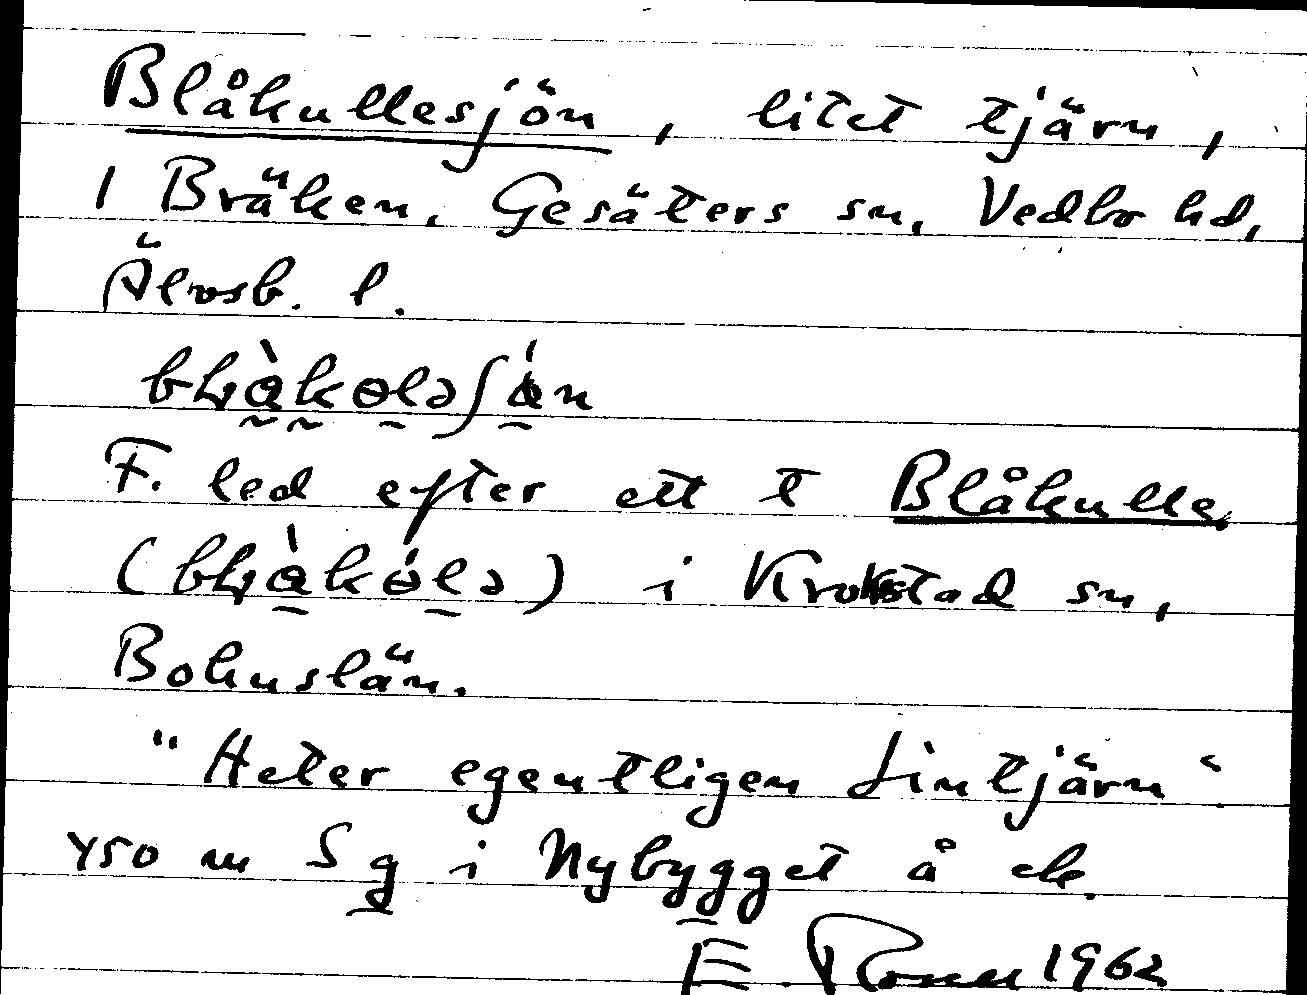 Blåkullesjön, litet tjärn,
i Bräken, Gesäters sn, Vedbo hd,
Älvsb. l.
F. led efter ett t Blåkulle
i Krokstad sn,
Bohuslän.
"Heter egentligen Lintjärn".
450 m S g i Nybygget å ek.
E. 1962